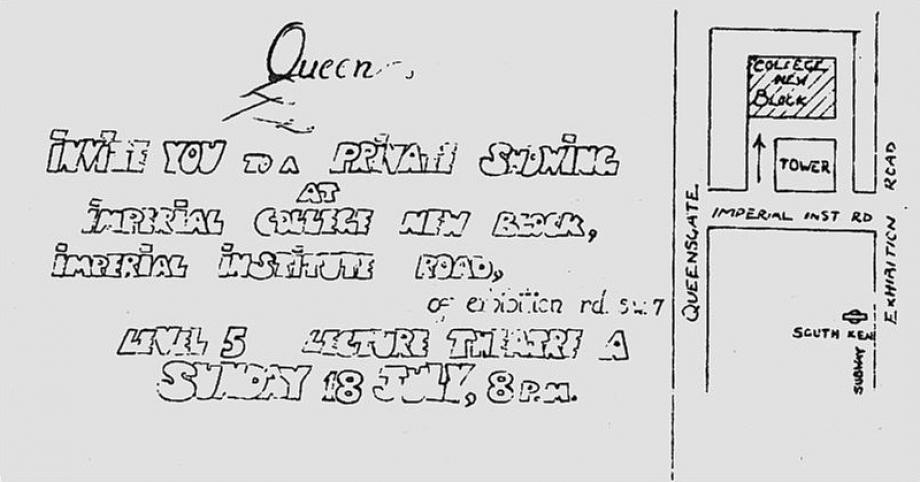 Queen
INVITE YOU TO A PRIVATE SHOWING
AT
IMPERIAL COLLEGE NEW BLOCK,
IMPERIAL INSTITUTE ROAD,
of exibition rd. s.w.7
LEVEL 5 LECTURE THEATRE A
SUNDAY 18 JULY, 8 P.M.
COLLEGE
NEW
BLOCK
TOWER
IMPERIAL INST RD
QUEENSGATE
EXHIBITION ROAD
SOUTH KEN
SUBWAY